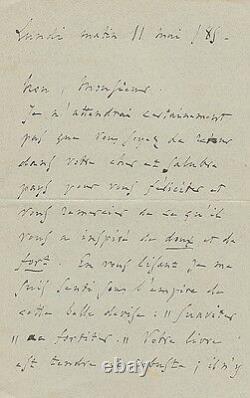 Lundi matin 11 mai / 85 -
Non, Monsieur.
Je n'attendrai certainement
pas que vous soyez de retour
dans votre cher et salubre
pays pour vous féliciter et
vous remercier de ce qu'il
vous a inspiré de doux et de
fort. En vous lisant je me
suis senti sous l'empire de
cette belle devise : " Suaviter
" ac fortiter. " Votre livre
est tendre et robuste ; il n'y